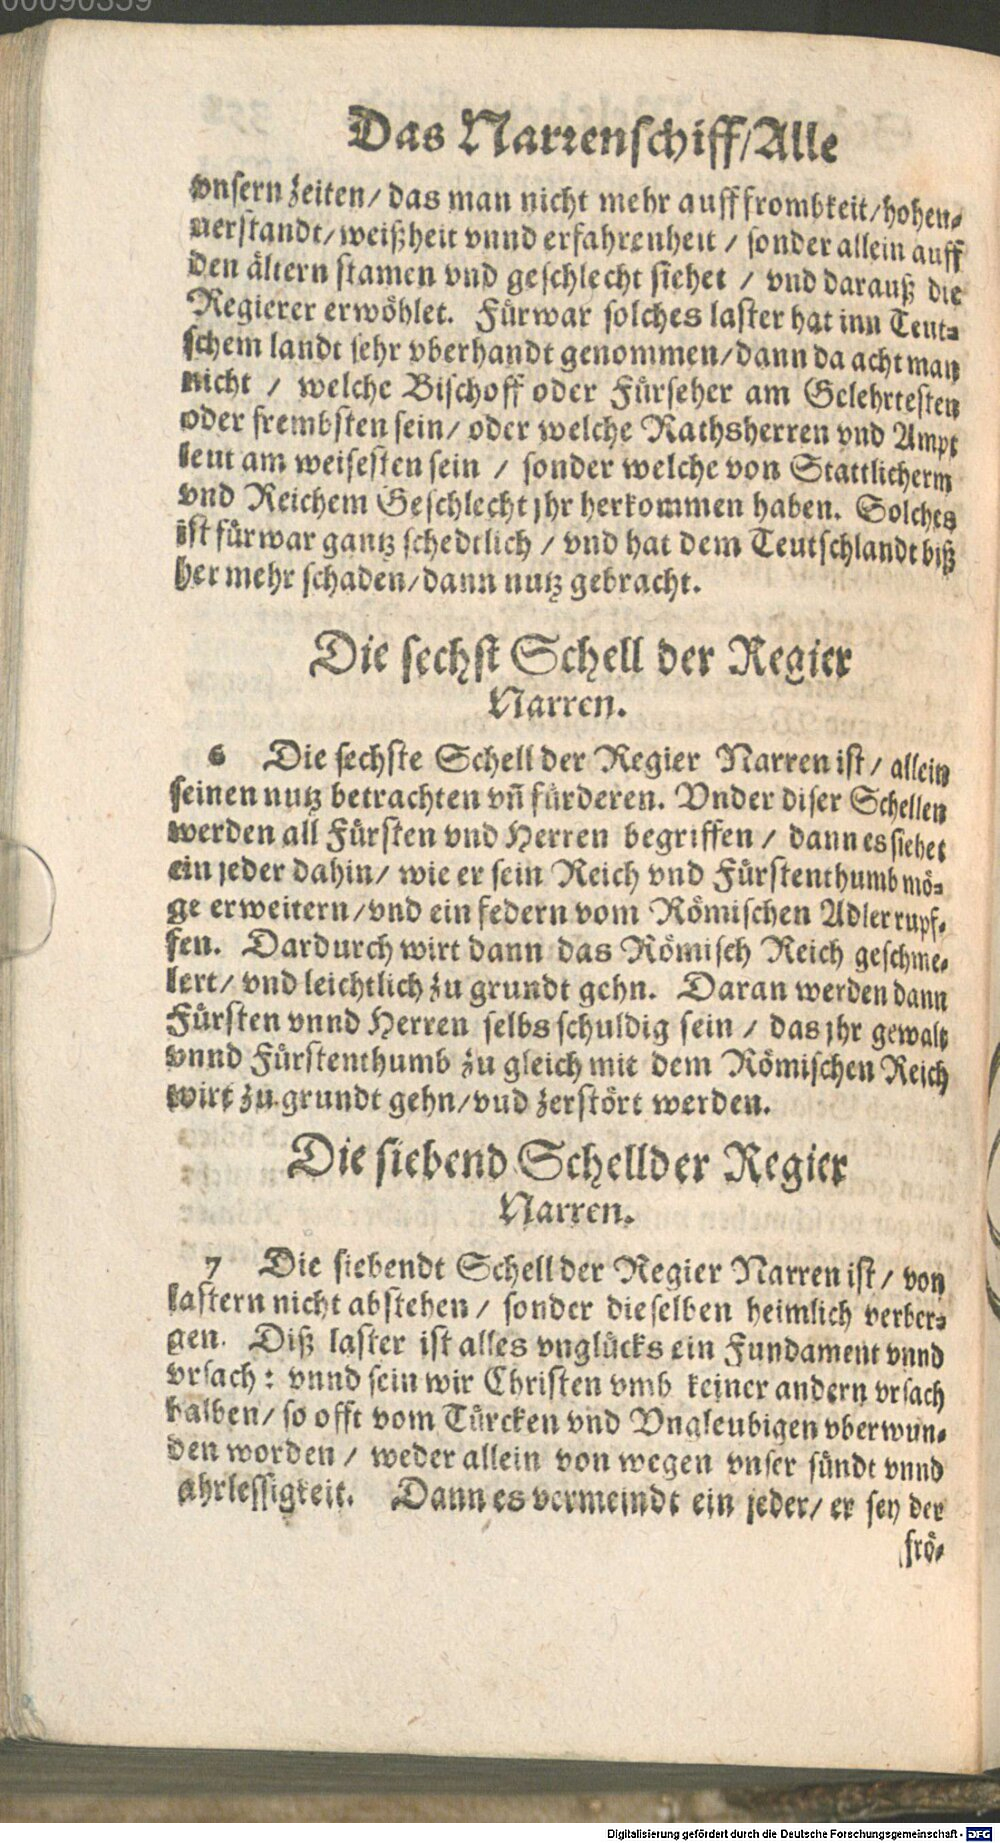 00090359
Das Narrenschiff/Alle
vnsern zeiten/ das man nicht mehr auff frombkeit/hohen-
verstandt/weißheit vnnd erfahrenheit / sonder allein auff
den ältern stamen vnd geschlecht siehet / vnd darauß die
Regierer erwöhlet. Fürwar solches laster hat inn Teut-
schem landt sehr vberhandt genommen/dann da acht man
nicht / welche Bischoff oder Fürseher am Gelehrtesten
oder frembsten sein/ oder welche Rathsherren vnd Ampt
leut am weisesten sein / sonder welche von Stattlicherm
vnd Reichem Geschlecht jhr herkommen haben. Solches
ist fürwar gantz schedtlich / vnd hat dem Teutschlandt biß
her mehr schaden/dann nutz gebracht.
Die sechst Schell der Regier
Narren.
6 Die sechste Schell der Regier Narren ist/ allein
seinen nutz betrachten vn̄ fürderen. Vnder diser Schellen
werden all Fürsten vnd Herren begriffen / dann es siehet
ein jeder dahin/ wie er sein Reich vnd Fürstenthumb mö-
ge erweitern/vnd ein federn vom Römischen Adler rupf-
fen. Dardurch wirt dann das Römisch Reich geschme-
lert/ vnd leichtlich zu grundt gehn. Daran werden dann
Fürsten vnnd Herren selbs schuldig sein / das jhr gewalt
vnnd Fürstenthumb zu gleich mit dem Römischen Reich
wirt zu grundt gehn/vud zerstört werden.
Die siebend Schell der Regier
Narren.
7 Die siebendt Schell der Regier Narren ist/ von
lastern nicht abstehen/ sonder dieselben heimlich verber-
gen. Diß laster ist alles vnglücks ein Fundament vnnd
vrsach: vnnd sein wir Christen vmb keiner andern vrsach
halben/ so offt vom Türcken vnd Vngleubigen vberwun-
den worden / weder allein von wegen vnser sündt vnnd
ahrlessigkeit. Dann es vermeindt ein jeder/ er sey der
frö-
Digitalisierung gefördert durch die Deutsche Forschungsgemeinschaft - DFG